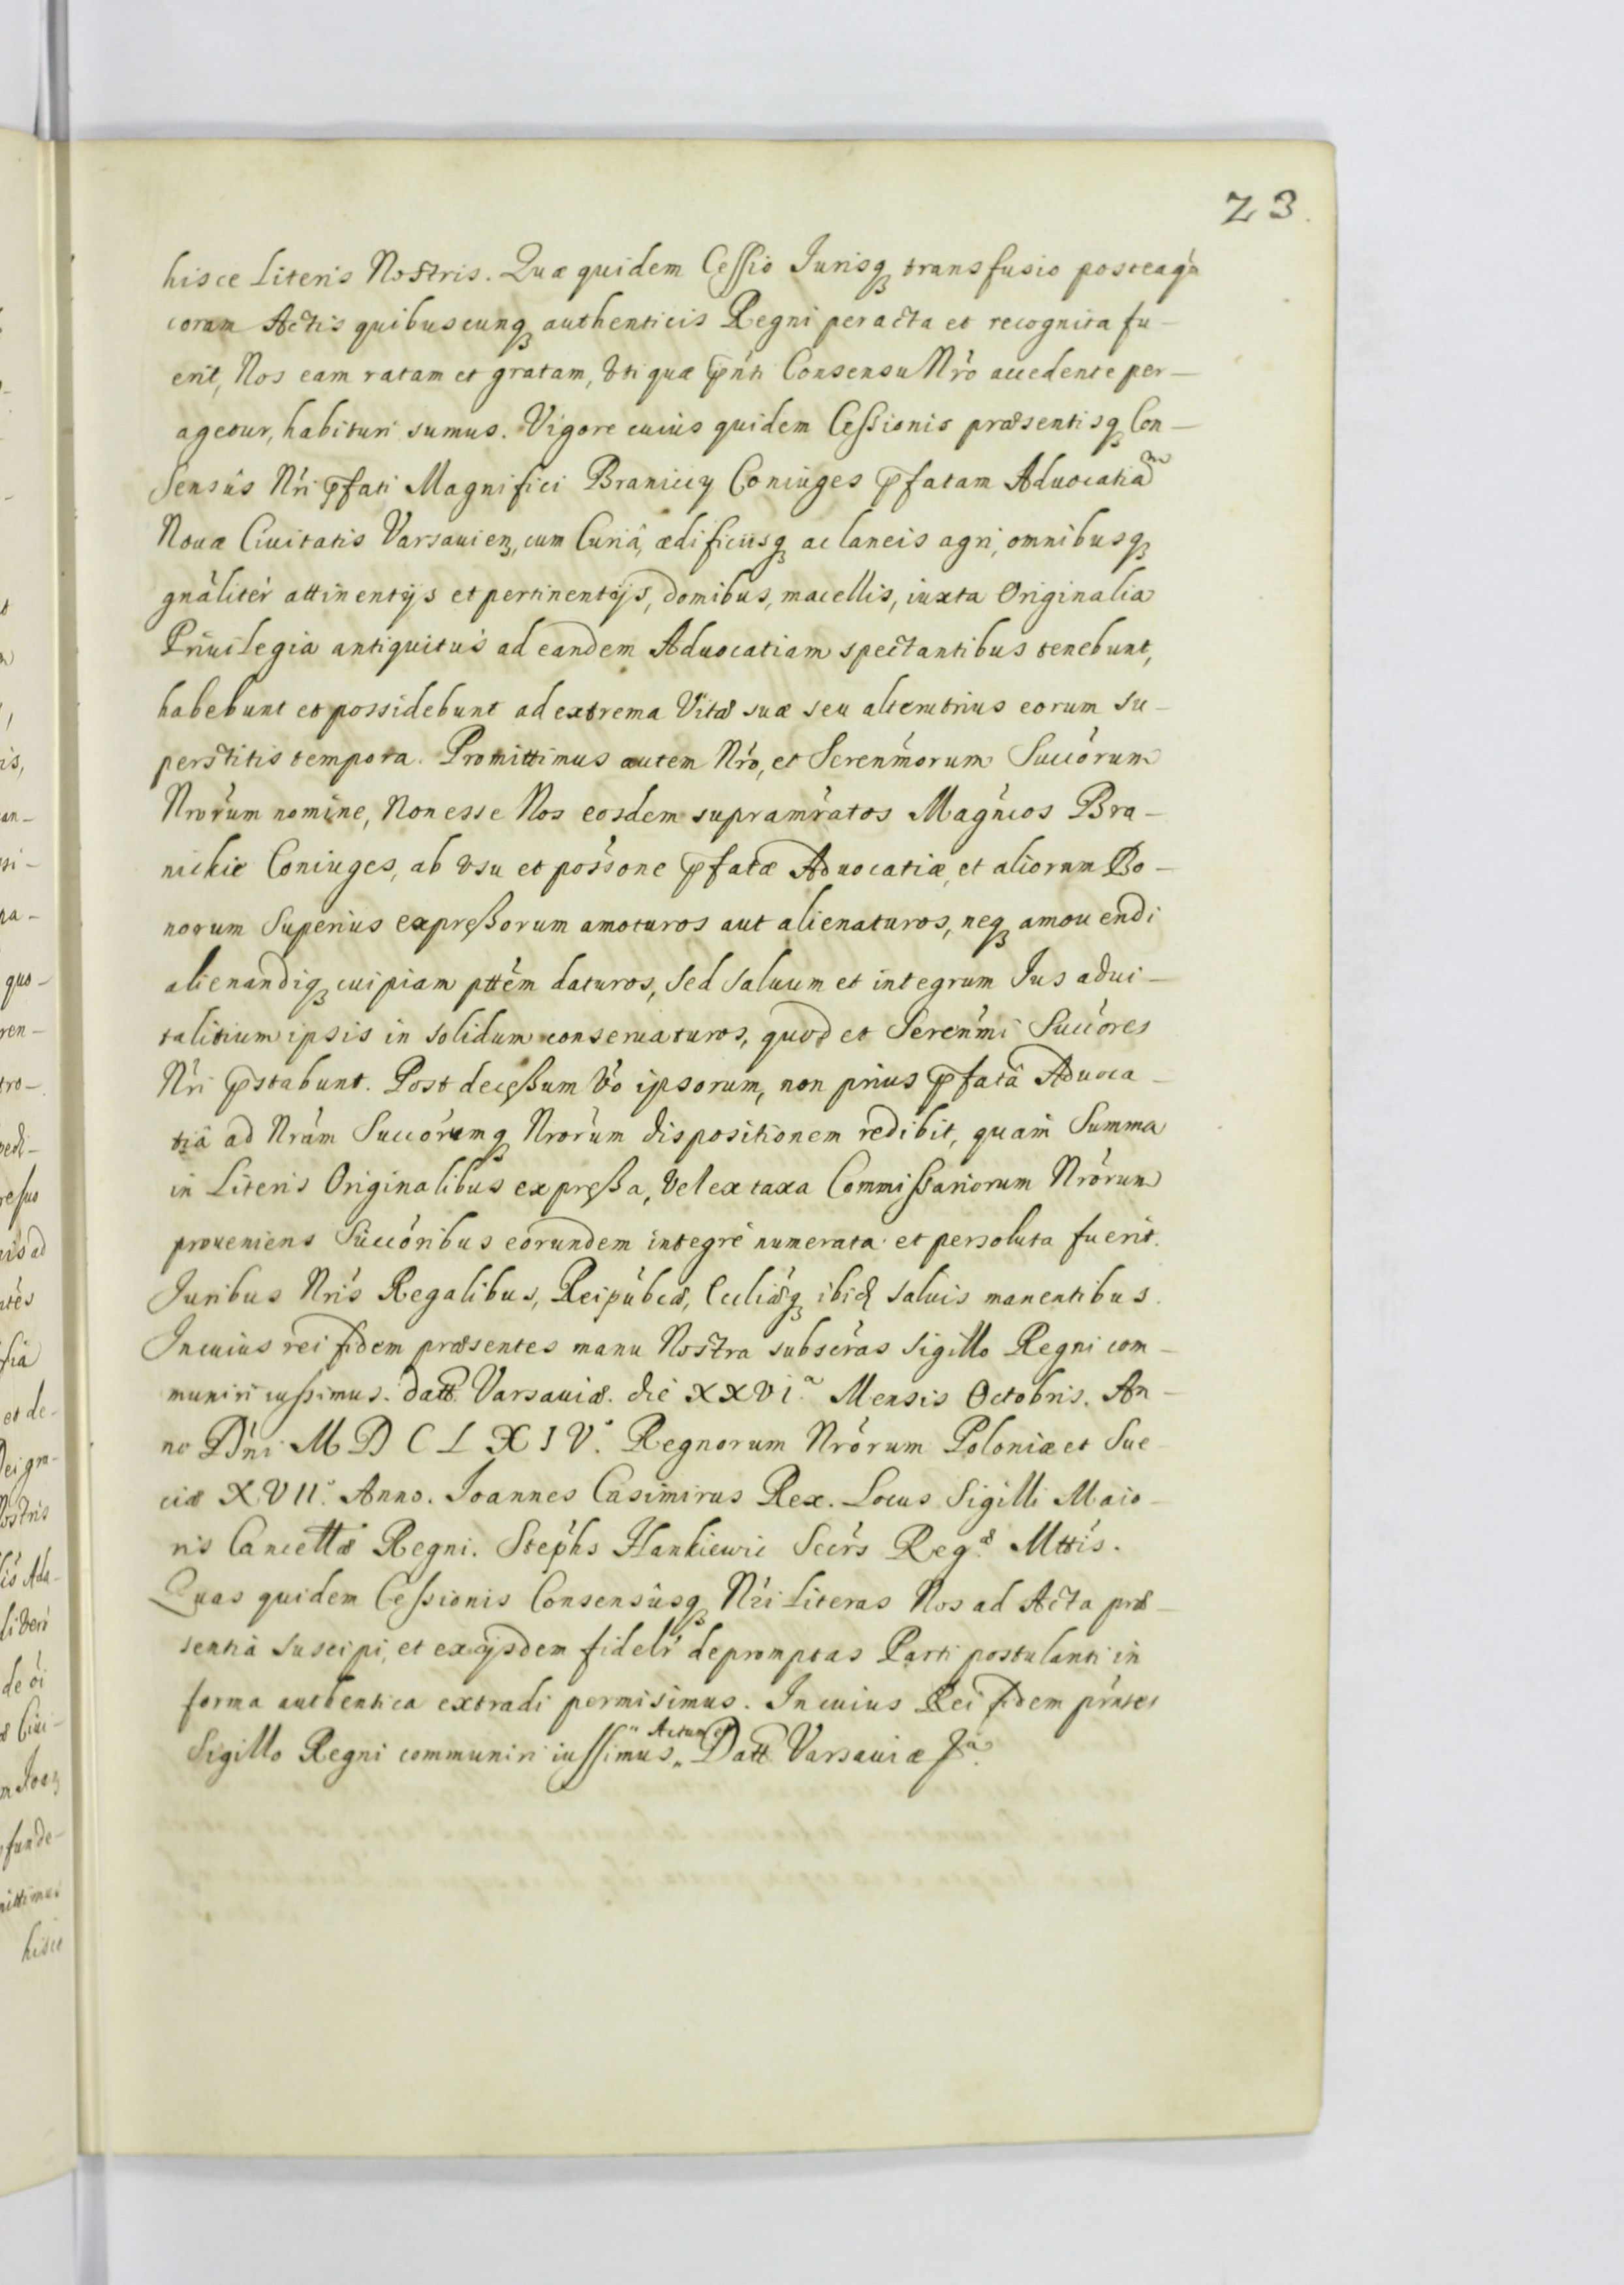 23.
hisce Literis Nostris. Quæ quidem Cessio Jurisq₃ transfusio posteaq̀
coram Actis quibuscunq₃ authenticis Regni peracta et recognita fu-
erit, Nos eam ratam et gratam, vti quæ p̄nti Consensu Nr̀o accedente per-
agetur, habituri sumus. Vigore cuius quidem Cessionis præsentisq₃ Con-
sensûs Nr̀i p̄fati Magnifici Braniccÿ Coniuges p̄fatam Aduocatiam
Nouæ Ciuitatis Varsauien₃, cum Curiâ, ædificiisq₃ ac laneis agri, omnibusq₃
gnàlitèr attinentijs et pertinentijs, domibus, macellis, iuxta Originalia
Priuilegia antiquitus ad eandem Aduocatiam spectantibus tenebunt,
habebunt et possidebunt ad extrema Vitæ suæ seu alterutrius eorum su-
perstitis tempora. Promittimus autem Nr̀o, et Serenm̀orum Succòrum
Nrorùm nomine, Non esse Nos eosdem supramr̀atos Magǹcos Bra-
nickie Coniuges, ab vsu et pos̀sone p̄fatæ Aduocatiæ, et aliorum Bo-
norum Superius expressorum amoturos aut alienaturos, neq₃ amouendi
alienandiq₃ cuipiam pttèm daturos, Sed Saluum et integrum Jus adui-
talitium ipsis in solidum conseruaturos, quod et Serenm̀i Succòres
Nr̀i p̄stabunt. Post decessum Vò ipsorum, non prius p̄fatâ Aduoca-
tiâ ad Nràm Succòrumq₃ Nrorùm dispositionem redibit, quam Summa
in Literis Originalibus expressa, Vel ex taxa Commissariorum Nròrum
proueniens Succòribus eorundem integrè numerata et persoluta fuerit.
Juribus Nrìs Regalibus, Reipùbcæ, Eccliæq₃ ibid saluis manentibus.
In cuius rei fidem præsentes manu Nostra subscr̀as Sigillo Regni com-
muniri iussimus. Datt. Varsauiæ. die XXVIa Mensis Octobris. An-
no Dǹi M D C L X I Vo. Regnorum Nròrum Poloniæ et Sue-
ciæ XVIIo. Anno. Joannes Casimirus Rex. Locus Sigilli Maio-
ris Cancellæ Regni. Stepħs Hankiewic Secr̀s Regæ Mttìs.
Quas quidem Cessionis Consensûsq₃ Nr̀i Literas Nos ad Acta præ-
sentia suscipi, et ex ijsdem fideli depromptas Parti postulanti in
forma authentica extradi permisimus. In cuius Rei fidem prǹtes
Sigillo Regni communiri iussimus „ Actum et Datt Varsauiæ